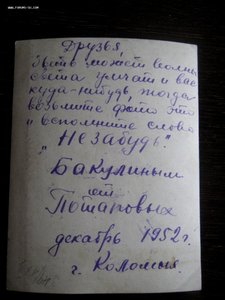 www.forums-su.com
Друзья,
Быть может волны
света умчат и вас
куда-нибудь тогда
возьмите фото это
и вспомните слово
„Незабудь".
Бакулиным
от
Потаповых
декабрь 1952г.
г. Коломыя.